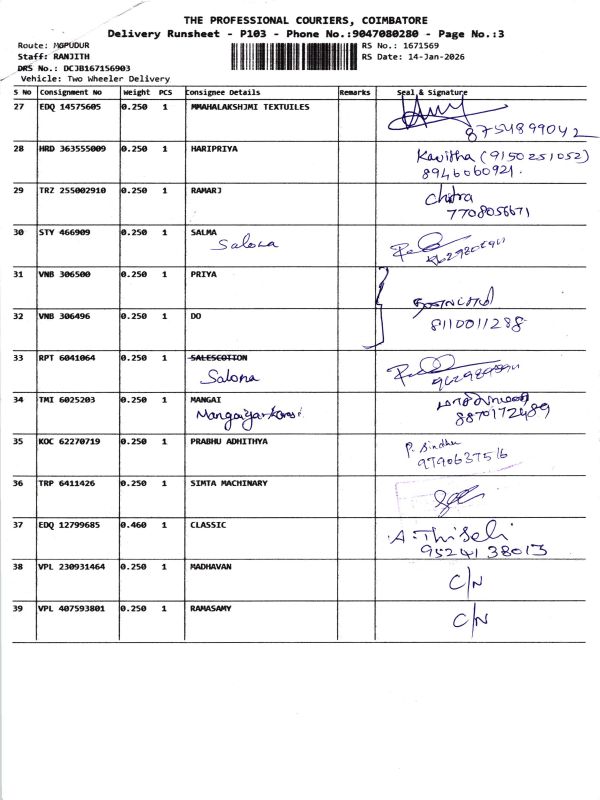 THE PROFESSIONAL COURIERS, COIMBATORE
Delivery Runsheet - P103 - Phone No.:9047080280 - Page No.:3
Route: MGPUDUR
RS No.: 1671569
Staff: RANJITH
RS Date: 14-Jan-2026
DRS No.: DCJB167156903
Vehicle: Two Wheeler Delivery
S No Consignment No Weight PCS Consignee Details Remarks Seal & Signature
27 EDQ 14575605 0.250 1 MMAHALAKSHJMI TEXTUILES
8754899042
28 HRD 363555009 0.250 1 HARIPRIYA Kavitha (9150251052)
8946060921.
29 TRZ 255002910 0.250 1 RAMARJ Chitra
7708056671
30 STY 466909 0.250 1 SALMA
Salona
31 VNB 306500 0.250 1 PRIYA
32 VNB 306496 0.250 1 DO
8110011288
33 RPT 6041064 0.250 1 SALESCOTTON
Salona
34 TMI 6025203 0.250 1 MANGAI
8870172489
35 KOC 62270719 0.250 1 PRABHU ADHITHYA P. Sindhu
9790637516
36 TRP 6411426 0.250 1 SIMTA MACHINARY
37 EDQ 12799685 0.460 1 CLASSIC A. Thiseli
9524138013
38 VPL 230931464 0.250 1 MADHAVAN C/N
39 VPL 407593801 0.250 1 RAMASAMY C/N